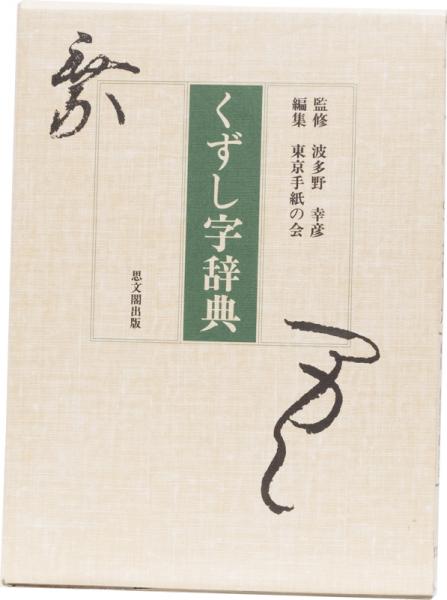 監修 波多野 幸彦
編集 東京手紙の会
くずし字辞典
思文閣出版